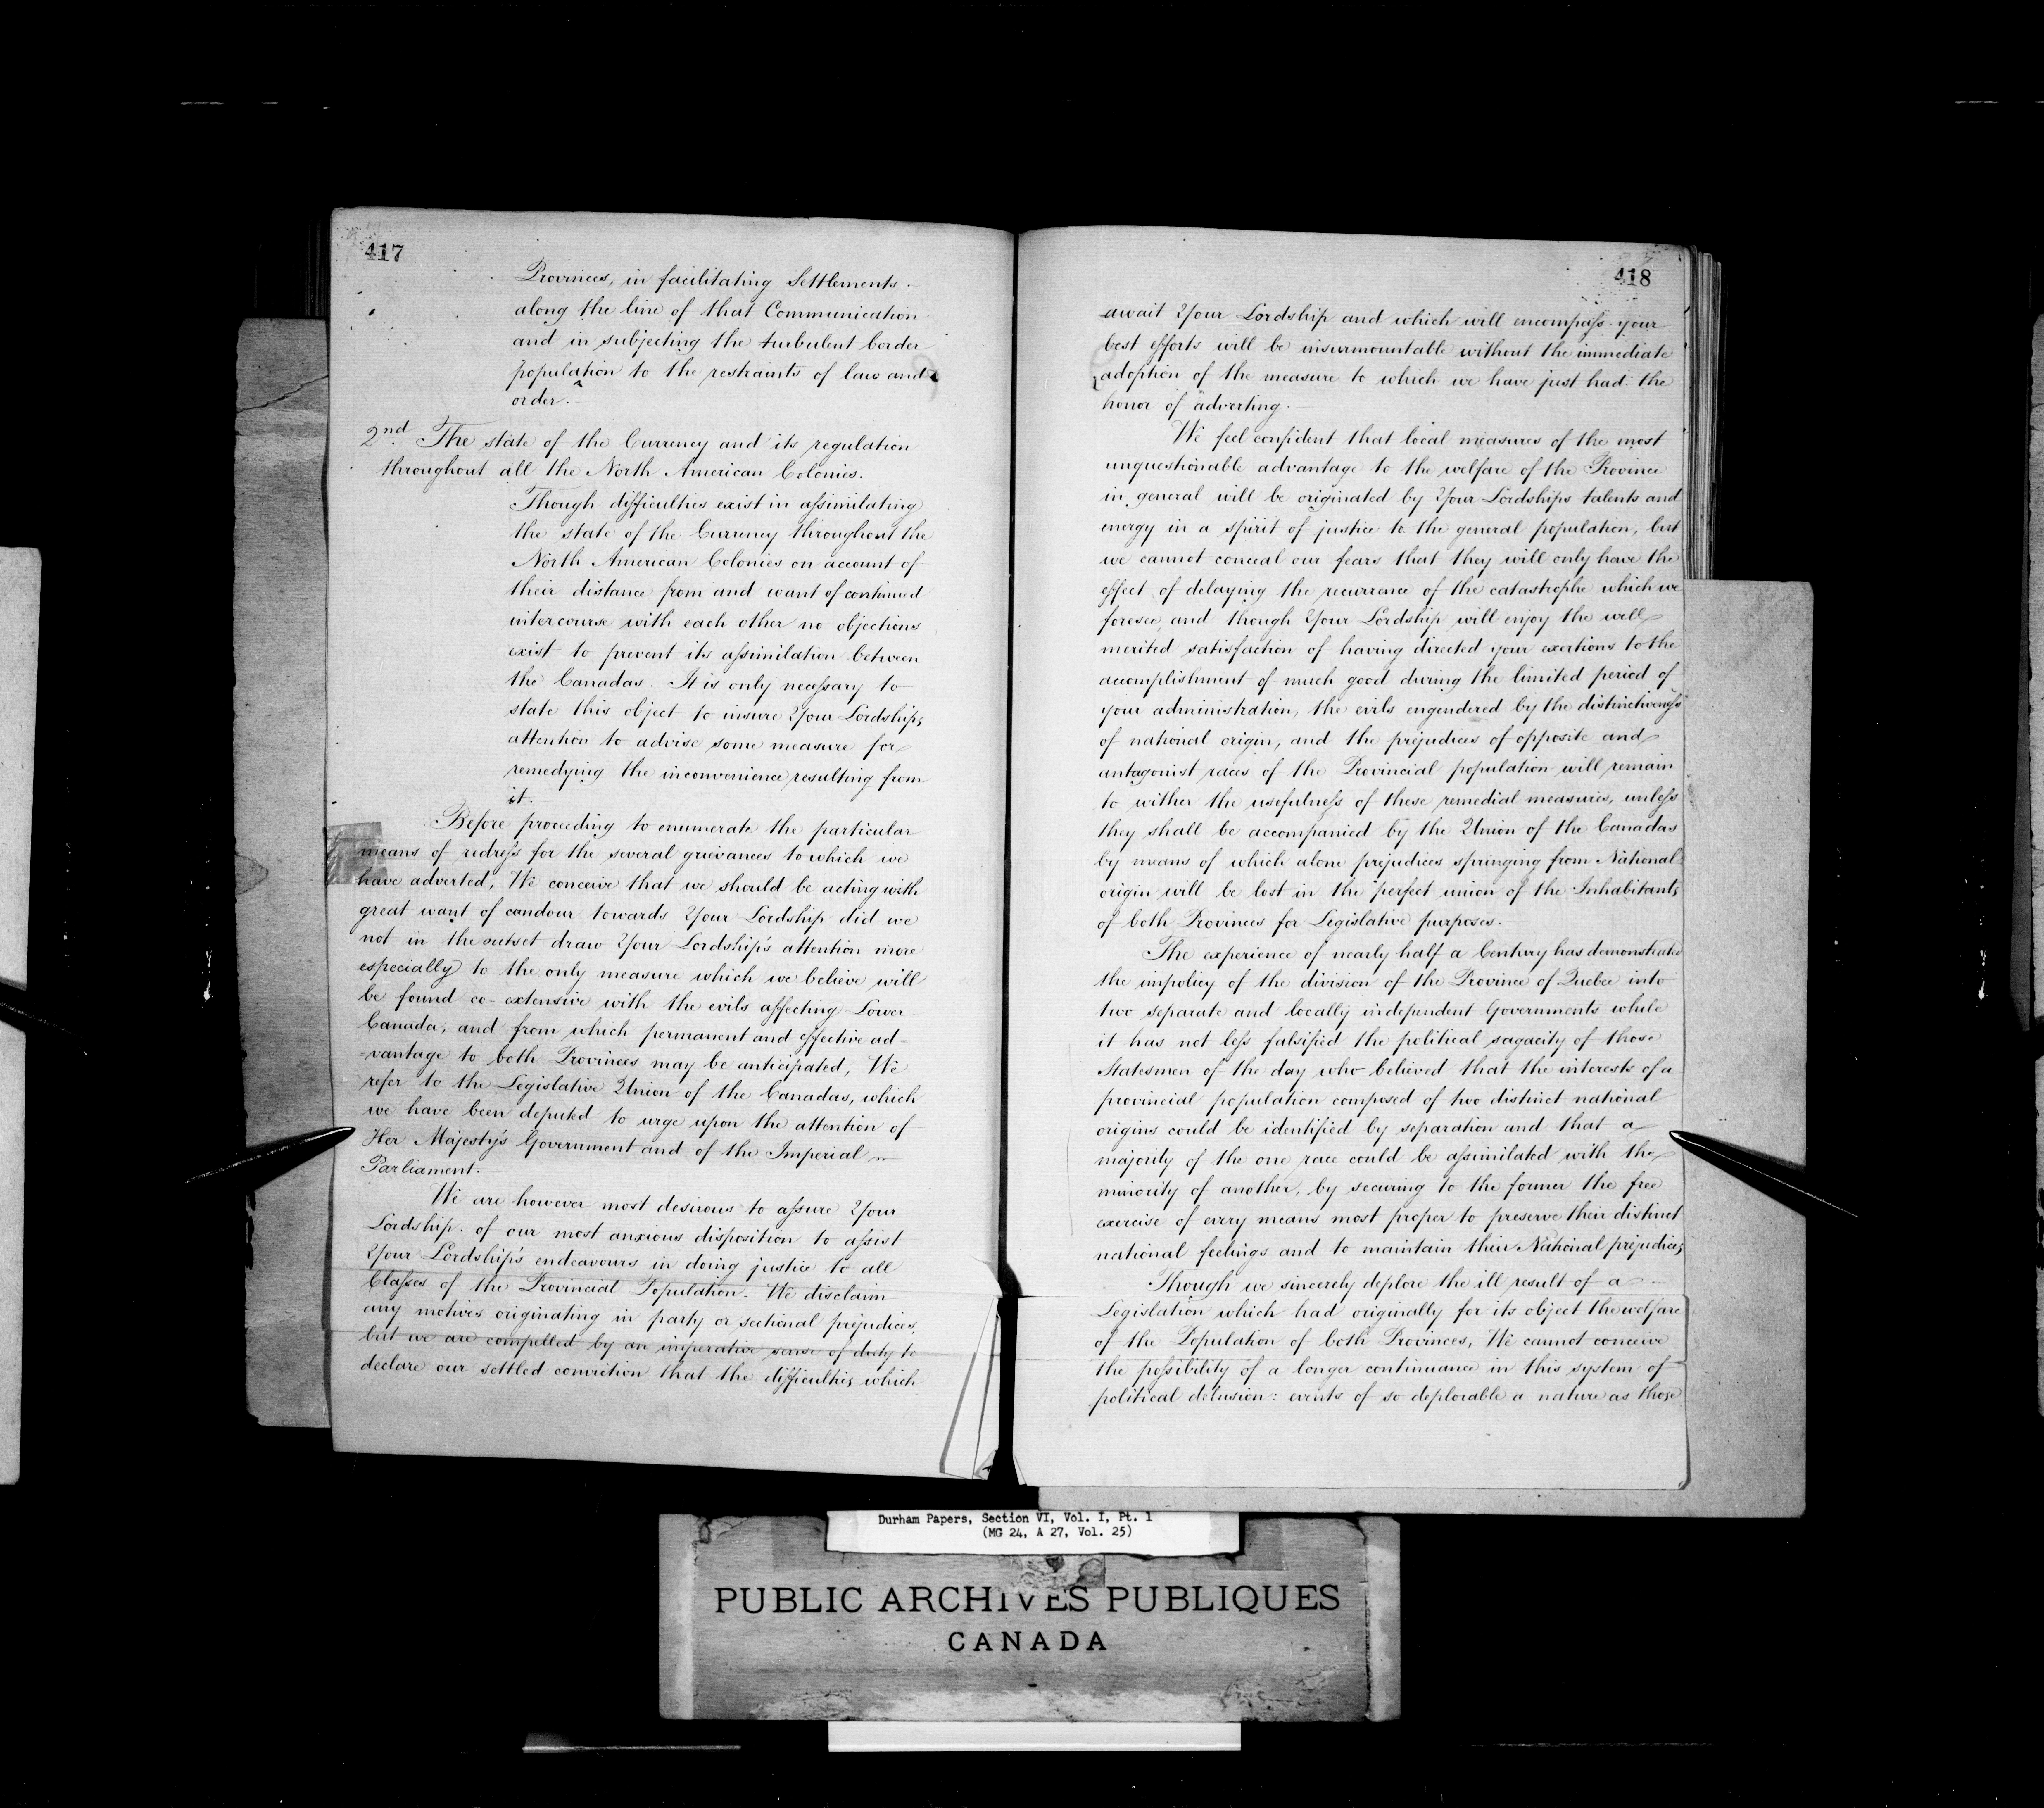 417
Provinces, in facilitating Settlements
along the line of that Communication
and in subjecting the turbulent border
population to the restraints of law and
order.
2nd The state of the Currency and its regulation
throughout all the North American Colonies.
Though difficulties exist in assimilating
the state of the Currency throughout the
North American Colonies on account of
their distance from and want of continued
intercourse with each other no objections
exist to prevent its assimilation between
the Canadas. It is only necessary to
state this object to insure Your Lordships
attention to advise some measure for
remedying the inconvenience resulting from
it.
Before proceeding to enumerate the particular
means of redress for the several grievances to which we
have adverted, We conceive that we should be acting with
great want of candour towards Your Lordship did we
not in the outset draw Your Lordship's attention more
especially to the only measure which we believe will
be found co-extensive with the evils affecting Lower
Canada, and from which permanent and effective ad=
=vantage to both Provinces may be anticipated, We
refer to the Legislative Union of the Canadas, which
we have been deputed to urge upon the attention of
Her Majesty's Government and of the Imperial
Parliament.
We are however most desirous to assure Your
Lordship of our most anxious disposition to assist
Your Lordship's endeavours in doing justice to all
Classes of the Provincial Population. We disclaim
any motives originating in party or sectional prejudices,
but we are compelled by an imperative sense of duty to
declare our settled conviction that the difficulties which
418
await Your Lordship and which will encompass your
best efforts will be insurmountable without the immediate
adoption of the measure to which we have just had the
honor of adverting.
We feel confident that local measures of the most
unquestionable advantage to the welfare of the Province
in general will be originated by Your Lordships talents and
energy in a spirit of justice to the general population, but
we cannot conceal our fears that they will only have the
effect of delaying the recurrence of the catastrophe which we
foresee, and though Your Lordship will enjoy the well
merited satisfaction of having directed your exertions to the
accomplishment of much good during the limited period of
your administration, the evils engendered by the distinctiveness
of national origin, and the prejudices of opposite and
antagonist races of the Provincial population will remain
to wither the usefulness of these remedial measures, unless
they shall be accompanied by the Union of the Canadas
by means of which alone prejudices springing from National
origin will be lost in the perfect union of the Inhabitants
of both Provinces for Legislative purposes.
The experience of nearly half a Century has demonstrated
the impolicy of the division of the Province of Quebec into
two separate and locally independent Governments while
it has not less falsified the political sagacity of those
Statesmen of the day who believed that the interests of a
provincial population composed of two distinct national
origins could be identified by separation and that a
majority of the one race could be assimilated with the
minority of another, by securing to the former the free
exercise of every means most proper to preserve their distinct
national feelings and to maintain their National prejudices
Though we sincerely deplore the ill result of a
Legislation which had originally for its object the welfare
of the Population of both Provinces, We cannot conceive
the possibility of a longer continuance in this system of
political delusion: events of so deplorable a nature as those
Durham Papers, Section VI, Vol. I, Pt. 1
(MG 24, A 27, Vol. 25)
PUBLIC ARCHIVES PUBLIQUES
CANADA